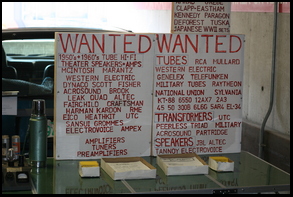 CLAPP-EASTHAM
KENNEDY PARAGON
DEFOREST TUSKA
JAPANESE WWII
WANTED
1950's + 1960's TUBE HI-FI
THEATER SPEAKERS + AMPS
MCINTOSH MARANTZ
WESTERN ELECTRIC
DYNACO SCOTT FISHER
ACROSOUND BROOK
LEAK QUAD ALTEC
FAIRCHILD CRAFTSMAN
HARMAN KARDON RME
EICO HEATHKIT UTC
SANSUI GROMMES
ELECTROVOICE AMPEX
AMPLIFIERS
TUNERS
PREAMPLIFIERS
WANTED
TUBES RCA MULLARD
WESTERN ELECTRIC
GENELEX TELEFUNKEN
MILITARY TUBES RAYTHEON
NATIONAL UNION SYLVANIA
KT-88 6550 12AX7 2A3
45 50 300B EL34
TRANSFORMERS UTC
PEERLESS TRIAD MILITARY
ACROSOUND PARTRIDGE
SPEAKERS JBL ALTEC
TANNOY ELECTROVOICE